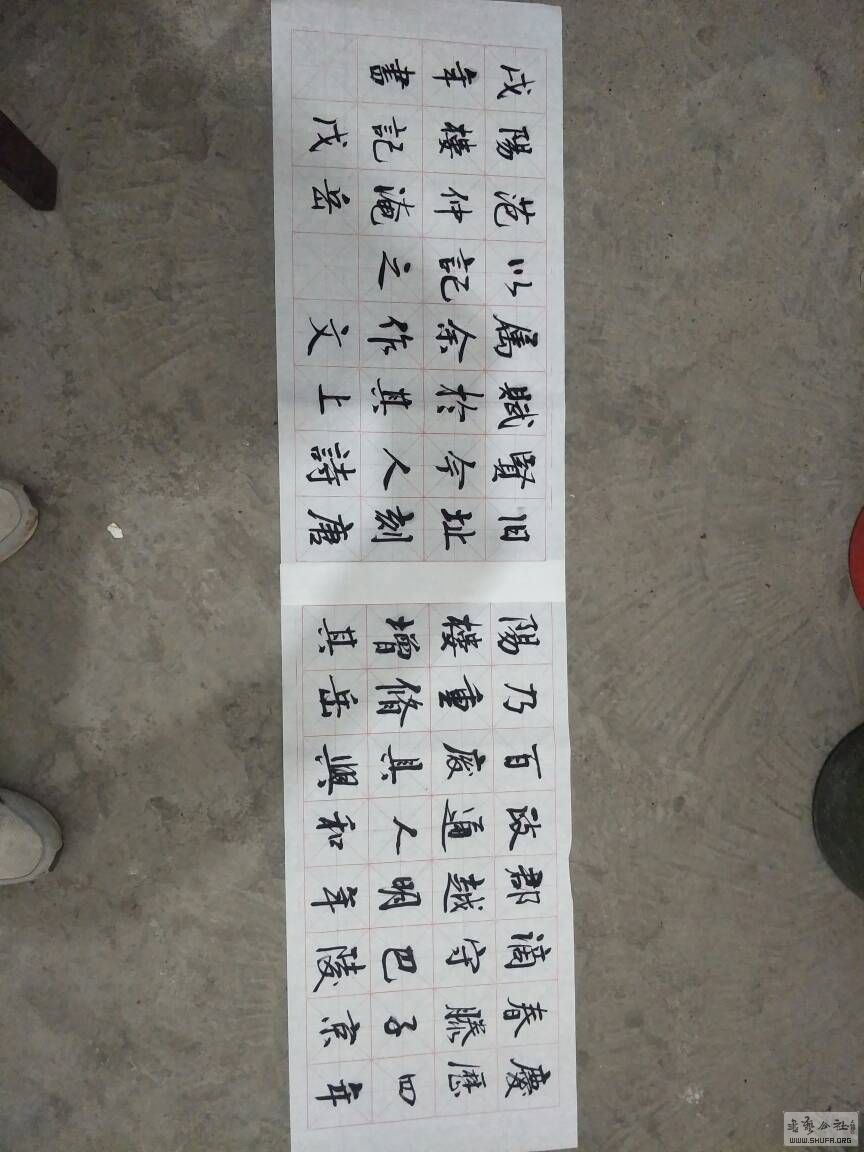 慶歷四年
春滕子京
谪守巴陵
郡越明年
政通人和
百废具興
乃重脩岳
陽樓增其
旧址刻唐
賢今人詩
賦於其上
属余作文
以記之
范仲淹岳
陽樓記戊
戌年書
書藝公社
WWW.SHUFA.ORG